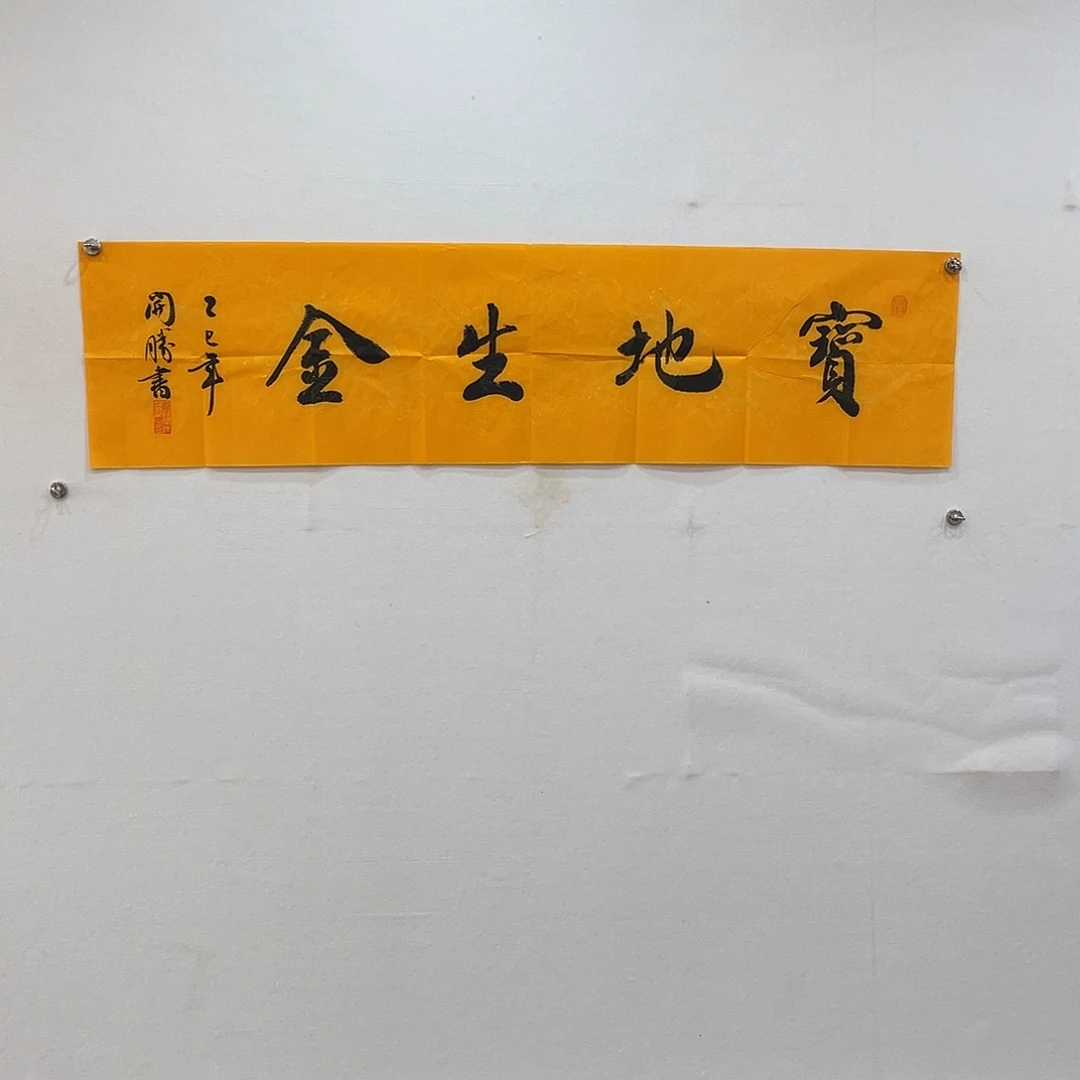 寶地生金
乙巳年
開勝書